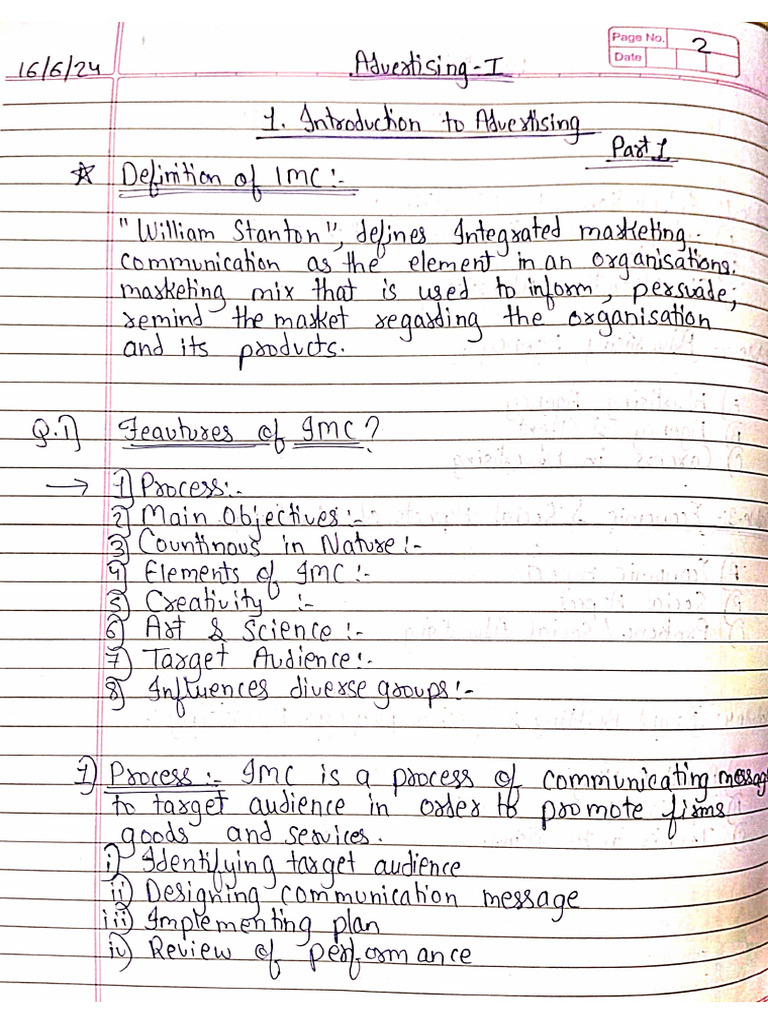 Page No. 2
Date
16/6/24 Advertising-I
1. Introduction to Advertising
Part 1
☆ Definition of IMC:-
"William Stanton", defines Integrated marketing
communication as the element in an organisations
marketing mix that is used to inform, persuade,
remind the market regarding the organisation
and its products.
Q.1) Feautures of IMC?
→ 1) Process:-
2) Main Objectives:-
3) Countinous in Nature:-
4) Elements of IMC:-
5) Creativity :-
6) Art & Science:-
7) Target Audience:-
8) Influences diverse groups:-
1) Process:- IMC is a process of communicating messag
to target audience in order to promote firms
goods and services.
i) Identifying target audience
ii) Designing communication message
iii) Implementing plan
iv) Review of performance